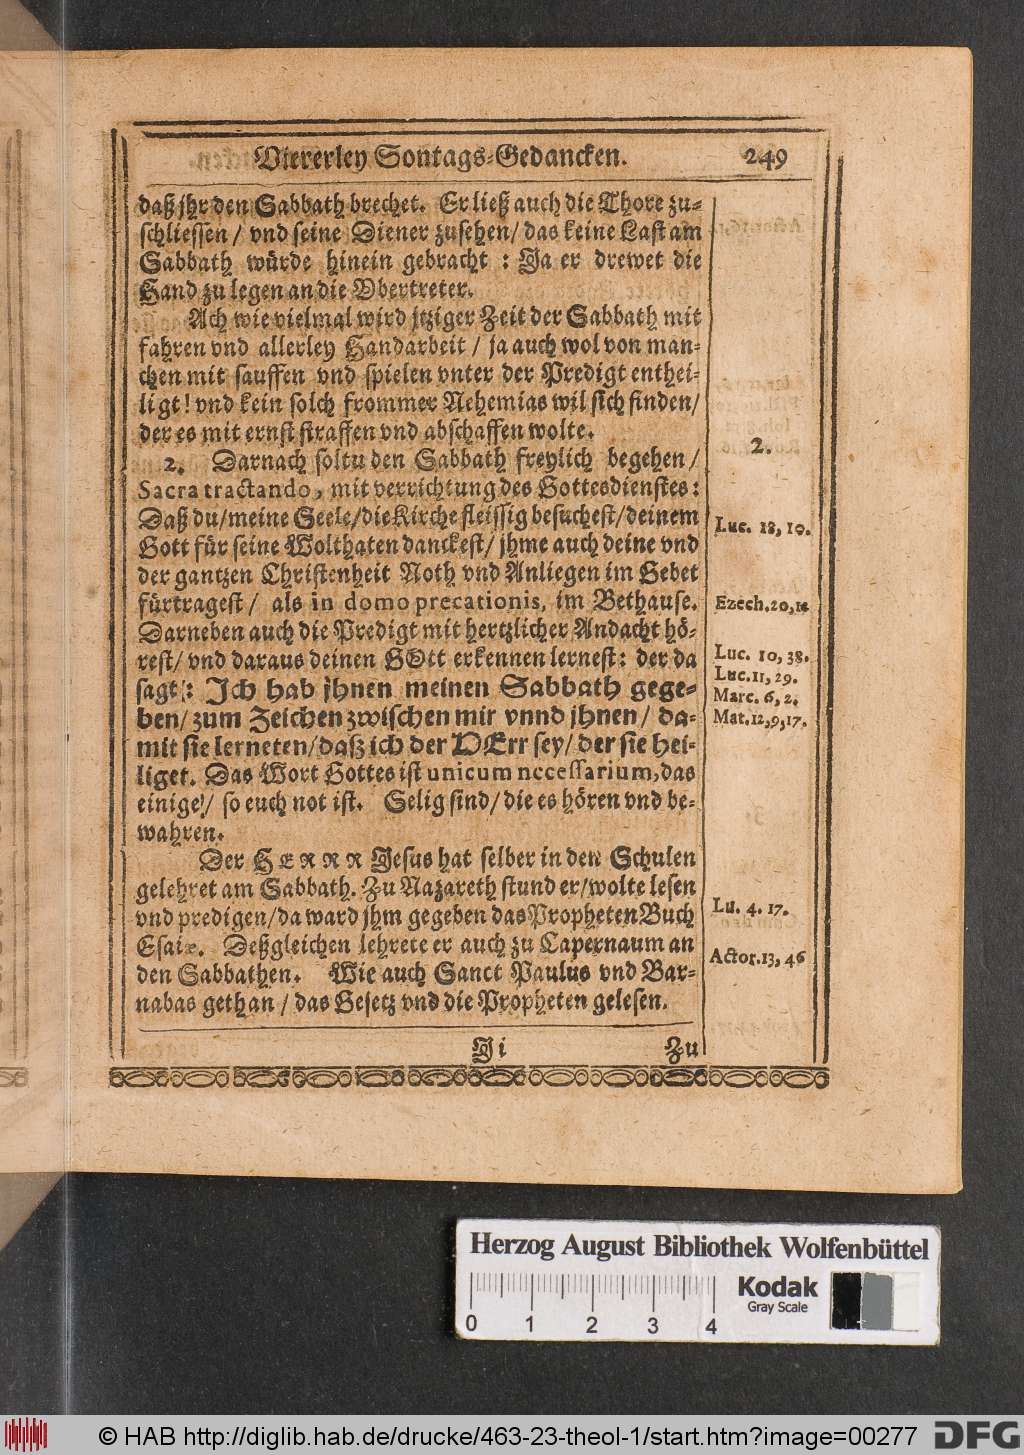 Viererley Sontags-Gedancken. 249
daß jhr den Sabbath brechet. Er ließ auch die Thore zu-
schliessen / vnd seine Diener zusehen / das keine Last am
Sabbath würde hinein gebracht : Ja er drewet die
Hand zu legen an die Vbertreter.
Ach wie vielmal wird jtziger Zeit der Sabbath mit
fahren vnd allerley Handarbeit / ja auch wol von man-
chen mit sauffen vnd spielen vnter der Predigt enthei-
ligt! vnd kein solch frommer Nehemias wil sich finden /
der es mit ernst straffen vnd abschaffen wolte.
2.
2. Darnach soltu den Sabbath freylich begehen /
Sacra tractando, mit verrichtung des Gottesdienstes:
Daß du / meine Seele / die Kirche fleissig besuchest / deinem
Luc. 18, 10.
Gott für seine Wolthaten danckest / jhme auch deine vnd
der gantzen Christenheit Noth vnd Anliegen im Gebet
fürtragest / als in domo precationis, im Bethause.
Ezech. 20, 12
Darneben auch die Predigt mit hertzlicher Andacht hö-
rest / vnd daraus deinen GOtt erkennen lernest: der da
Luc. 10, 38.
sagt: Ich hab jhnen meinen Sabbath gege-
Luc. 11, 29.
Marc. 6, 2.
ben / zum Zeichen zwischen mir vnnd jhnen / da-
Mat. 12, 9, 17.
mit sie lerneten / daß ich der HErr sey / der sie hei-
liget. Das Wort Gottes ist unicum necessarium, das
einige / so euch not ist. Selig sind / die es hören vnd be-
wahren.
Der HERRR Jesus hat selber in den Schulen
gelehret am Sabbath. Zu Nazareth stund er / wolte lesen
vnd predigen / da ward jhm gegeben das Propheten Buch
Lu. 4. 17.
Esaiæ. Deßgleichen lehrete er auch zu Capernaum an
den Sabbathen. Wie auch Sanct Paulus vnd Bar-
Actor. 13, 46
nabas gethan / das Gesetz vnd die Propheten gelesen.
Ji Zu
Herzog August Bibliothek Wolfenbüttel
Kodak
Gray Scale
0 1 2 3 4
© HAB http://diglib.hab.de/drucke/463-23-theol-1/start.htm?image=00277
DFG